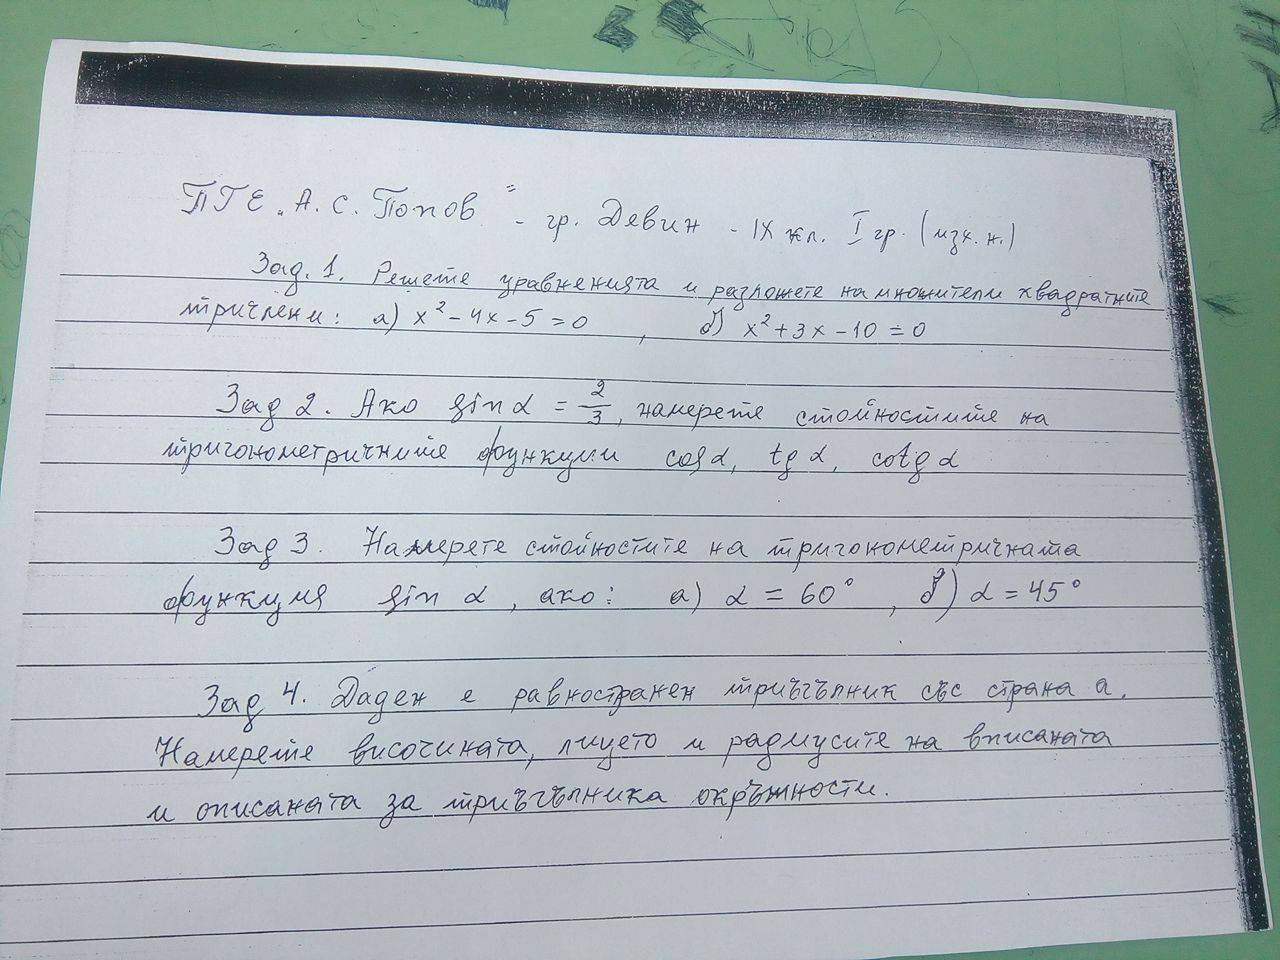 ПГЕ „А. С. Попов" - гр. Девин - IX кл. I гр. (изх. н.)
Зад. 1. Решете уравненията и разложете на множители квадратните
тричлени: а) x² - 4x - 5 = 0 , б) x² + 3x - 10 = 0
Зад 2. Ако sin α = 2/3, намерете стойностите на
тригонометричните функции cos α, tg α, cotg α
Зад 3. Намерете стойностите на тригонометричната
функция sin α, ако: а) α = 60° , б) α = 45°
Зад 4. Даден е равностранен триъгълник със страна a.
Намерете височината, лицето и радиусите на вписаната
и описаната за триъгълника окръжности.